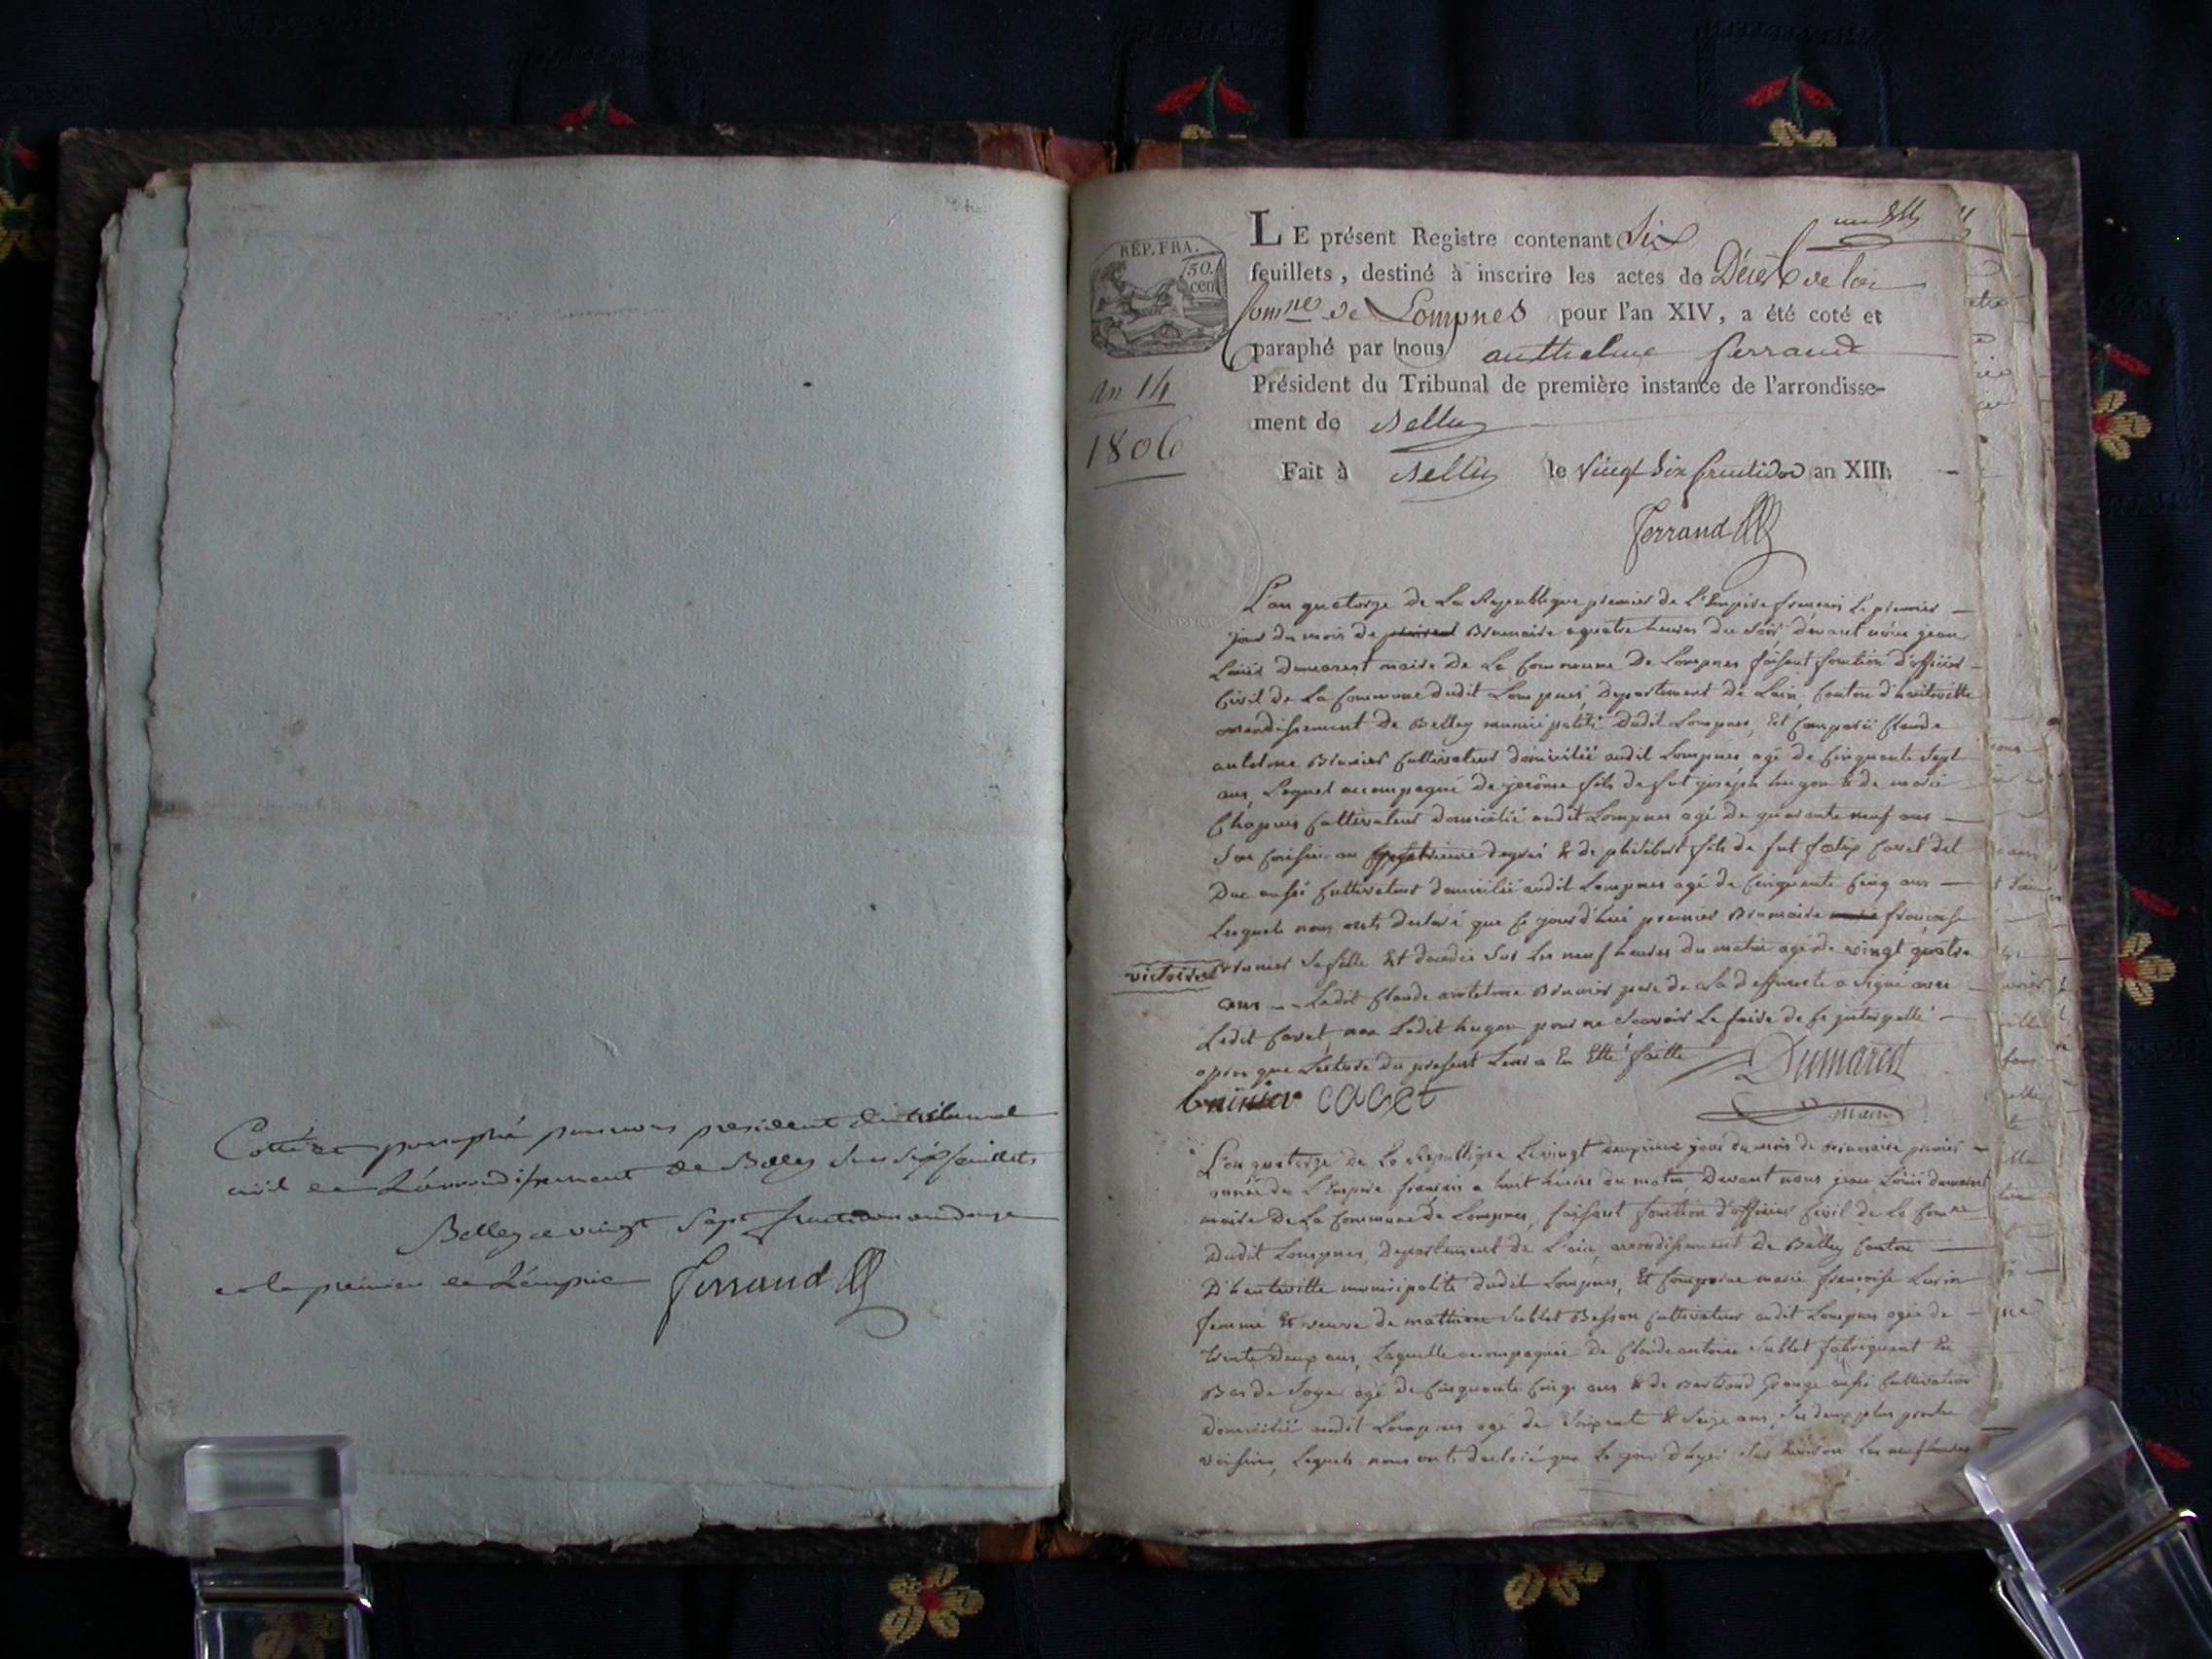 Cotté et paraphé par nous president du tribunal
civil de L'arrondissement de Belley sur six feuillets
Belley ce vingt sept fructidor an douze
et le premier de L'empire Ferrand
RÉP. FRA.
50. cen
an 14
1806
LE présent Registre contenant Six
feuillets, destiné à inscrire les actes de Décès de la
Comne de Lompnes pour l'an XIV, a été coté et
paraphé par nous anthelme ferrand
Président du Tribunal de première instance de l'arrondisse-
ment de Belley
Fait à Belley le vingt six fructidor an XIII.
Ferrand
L'an quatorze de La Republique premier de L'Empire français Le premier
jour du mois de Brumaire a quatre heures du soir devant nous jean
Louis dumarest maire de La Commune de Lompnes faisant fonction d'officier
Civil de La Commune dudit Lompnes, Departement de Lain, Canton d'hauteville
arrondissement de Belley municipalité dudit Lompnes, Et Comparu Claude
antelme Brunier Cultivateur domicilié audit Lompnes agé de Cinquante sept
ans, Lequel accompagné de jerôme fils de fut joseph hugon & de marie
Chapuis Cultivateur domicilié audit Lompnes agé de quarante neuf ans
Son Cousin au degrés & de philibert fils de fut Cavet dit
Duc aussi Cultivateur domicilié audit Lompnes agé de Cinquante Cinq ans
Lesquels nous onts declaré que Ce jourd'hui premier Brumaire françoise
victoire Brunier Sa fille Et decedée Sur Les neuf heures du matin agé de vingt quatre
ans -- Ledit Claude antelme Brunier pere de La deffuncte a Signé avec
Ledit Cavet, non Ledit hugon pour ne Scavoir Le faire de Ce interpellé
apres que Lecture du present Leur a Eu Etté faitte Dumarest
brunier cavet maire
L'an quatorze de La Republique Le vingt deuxieme jour du mois de Brumaire premier
année de L'Empire français a huit heures du matin, Devant nous jean Louis dumarest
maire De La Commune de Lompnes, faisant fonction d'officier Civil de La Comne
Dudit Lompnes, Departement de L'ain, arrondissement de Belley Canton
D'hauteville municipalité dudit Lompnes, Et Comparue marie françoise
femme Et veuve de mathieu Sublet Besson Cultivateur audit Lompnes agée de
trente Deux ans, Laquelle accompagnée de Claude antoine Sublet fabriquant En
Bas de Soye agé de Cinquante Cinq ans & de Bertrand Grange aussi Cultivateur
Domicilié audit Lompnes agé de Soixante & Seize ans, Ses deux plus proche
voisins, Lequels nous onts declaré que Le jour d'hyer Sur Environ Les neuf heures